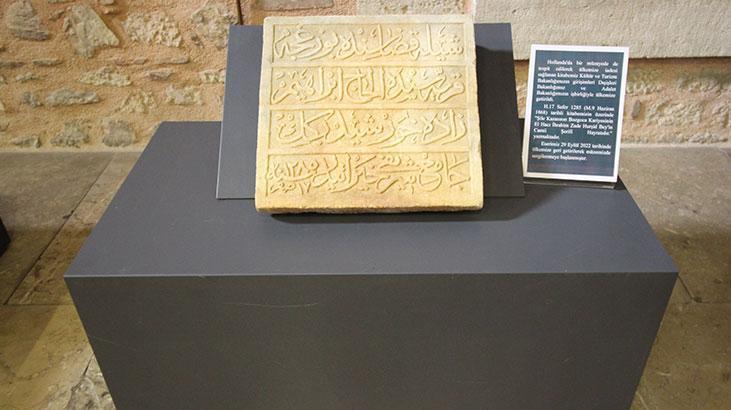 شیله قضاسنده بوزغجه
قریه سنده الحاج ابراهیم
زاده خورشید بكك
جامع شریف خیراتیدر ١٢٨٥
Hollanda'da bir müzayede de
tespit edilerek ülkemize iadesi
sağlanan kitabemiz Kültür ve Turizm
Bakanlığımızın girişimleri Dışişleri
Bakanlığımız ve Adalet
Bakanlığımızın işbirliğiyle ülkemize
getirildi.
H.17 Safer 1285 (M.9 Haziran
1868) tarihli kitabemizin üzerinde
"Şile Kazasının Bozgoca Kariyesinin
El Hacı İbrahim Zade Hurşid Bey'in
Camii Şerifi Hayratıdır."
yazmaktadır.
Eserimiz 29 Eylül 2022 tarihinde
ülkemize geri getirilerek müzemizde
sergilenmeye başlanmıştır.